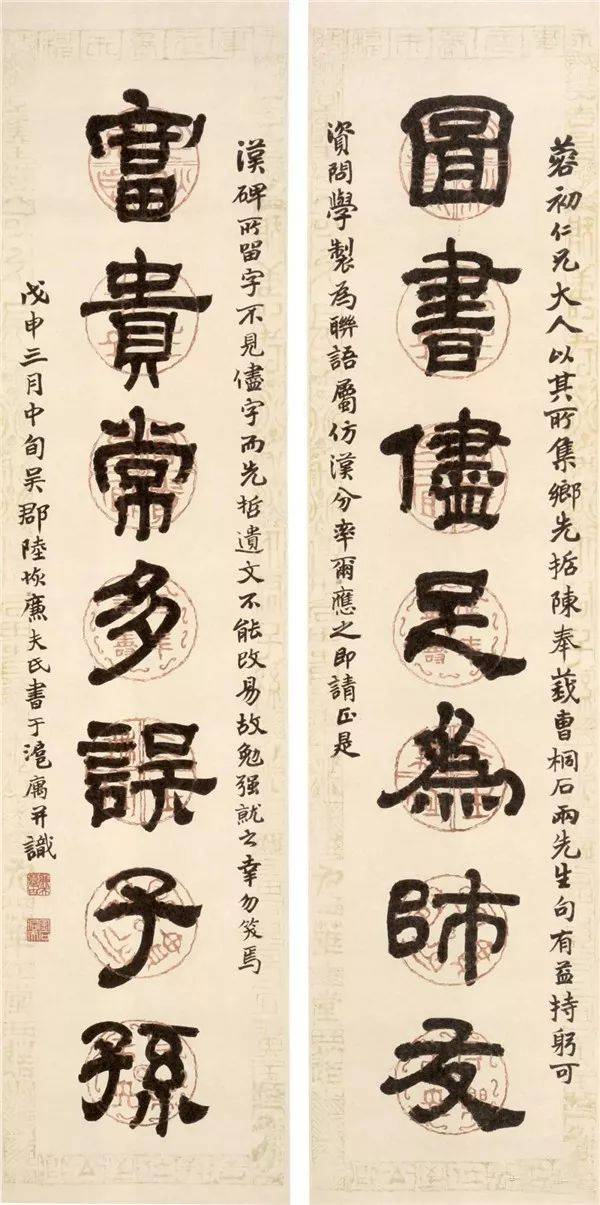 圖書儘足為師友
蓉初仁兄大人以其所集鄉先哲陳奉莪曹桐石兩先生句有益持躬可
資問學製為聯語屬仿漢分率爾應之即請正是
富貴常多誤子孫
漢碑所留字不見儘字而先哲遺文不能改易故勉强就之幸勿笑焉
戊申三月中旬吴郡陸恢廉夫氏書于滬寓并識